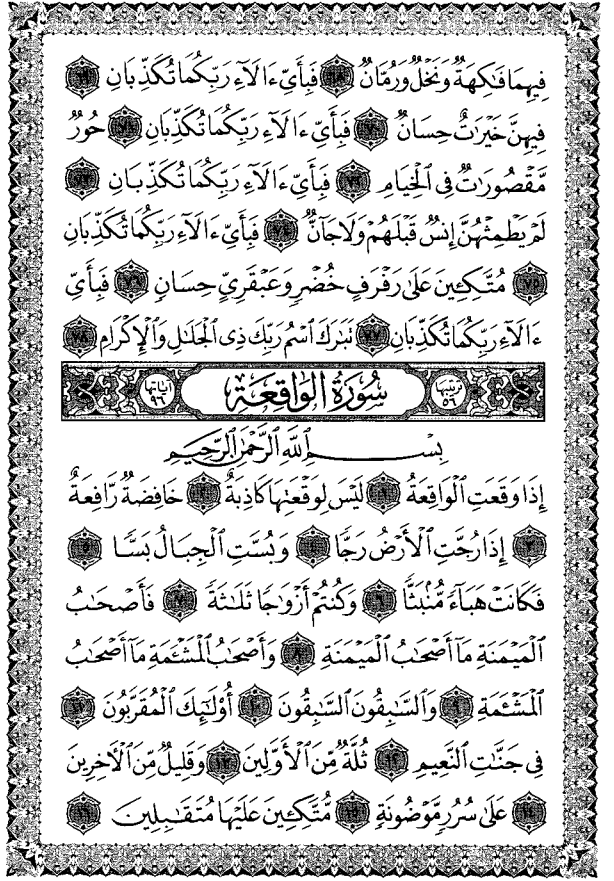 فِيهِمَا فَـٰكِهَةٌ وَنَخْلٌ وَرُمَّانٌ ۝٦٨ فَبِأَيِّ ءَالَآءِ رَبِّكُمَا تُكَذِّبَانِ ۝٦٩
فِيهِنَّ خَيْرَٰتٌ حِسَانٌ ۝٧٠ فَبِأَيِّ ءَالَآءِ رَبِّكُمَا تُكَذِّبَانِ ۝٧١ حُورٌ
مَّقْصُورَٰتٌ فِى ٱلْخِيَامِ ۝٧٢ فَبِأَيِّ ءَالَآءِ رَبِّكُمَا تُكَذِّبَانِ ۝٧٣
لَمْ يَطْمِثْهُنَّ إِنسٌ قَبْلَهُمْ وَلَا جَآنٌّ ۝٧٤ فَبِأَيِّ ءَالَآءِ رَبِّكُمَا تُكَذِّبَانِ
۝٧٥ مُتَّكِـِٔينَ عَلَىٰ رَفْرَفٍ خُضْرٍ وَعَبْقَرِىٍّ حِسَانٍ ۝٧٦ فَبِأَيِّ
ءَالَآءِ رَبِّكُمَا تُكَذِّبَانِ ۝٧٧ تَبَـٰرَكَ ٱسْمُ رَبِّكَ ذِى ٱلْجَلَـٰلِ وَٱلْإِكْرَامِ ۝٧٨
ترتيبها ٥٦ سُورَةُ الوَاقِعَةِ آياتها ٩٦
بِسْمِ ٱللَّهِ ٱلرَّحْمَـٰنِ ٱلرَّحِيمِ
إِذَا وَقَعَتِ ٱلْوَاقِعَةُ ۝١ لَيْسَ لِوَقْعَتِهَا كَاذِبَةٌ ۝٢ خَافِضَةٌ رَّافِعَةٌ
۝٣ إِذَا رُجَّتِ ٱلْأَرْضُ رَجًّا ۝٤ وَبُسَّتِ ٱلْجِبَالُ بَسًّا ۝٥
فَكَانَتْ هَبَآءً مُّنۢبَثًّا ۝٦ وَكُنتُمْ أَزْوَٰجًا ثَلَـٰثَةً ۝٧ فَأَصْحَـٰبُ
ٱلْمَيْمَنَةِ مَآ أَصْحَـٰبُ ٱلْمَيْمَنَةِ ۝٨ وَأَصْحَـٰبُ ٱلْمَشْـَٔمَةِ مَآ أَصْحَـٰبُ
ٱلْمَشْـَٔمَةِ ۝٩ وَٱلسَّـٰبِقُونَ ٱلسَّـٰبِقُونَ ۝١٠ أُو۟لَـٰٓئِكَ ٱلْمُقَرَّبُونَ ۝١١
فِى جَنَّـٰتِ ٱلنَّعِيمِ ۝١٢ ثُلَّةٌ مِّنَ ٱلْأَوَّلِينَ ۝١٣ وَقَلِيلٌ مِّنَ ٱلْـَٔاخِرِينَ
۝١٤ عَلَىٰ سُرُرٍ مَّوْضُونَةٍ ۝١٥ مُّتَّكِـِٔينَ عَلَيْهَا مُتَقَـٰبِلِينَ ۝١٦